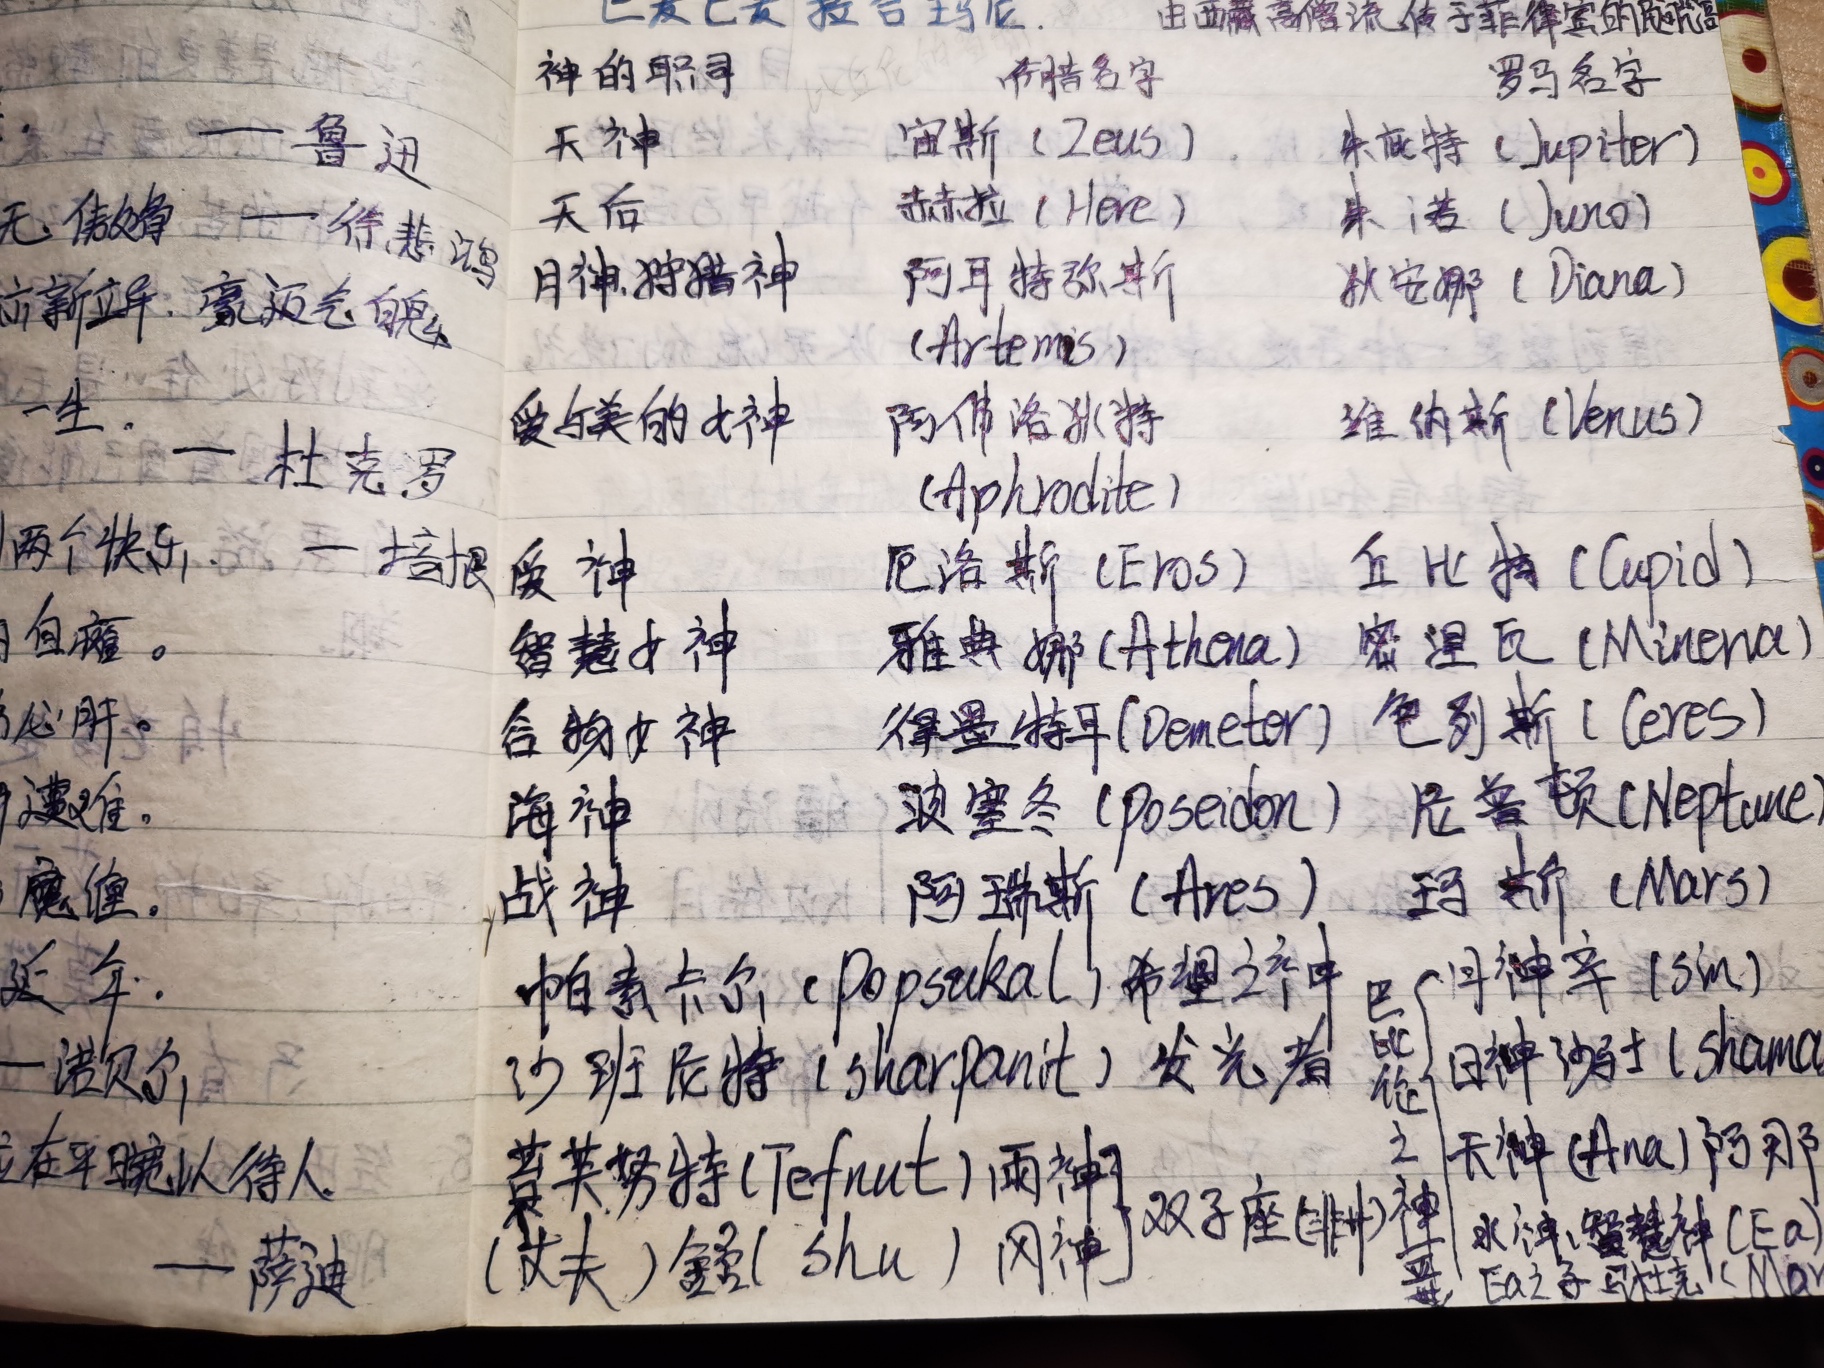 ——鲁迅
无傲骨 ——徐悲鸿
立新立异.豪迈气魄
一生.
—杜克罗
两个快乐. —培根
自
心肝。
遭难。
魔
延年.
—诺贝尔
在平 以待人.
——萨迪
由西藏高僧流传于菲律宾的
神的职司 希腊名字 罗马名字
天神 宙斯(Zeus) 朱庇特(Jupiter)
天后 赫拉(Here) 朱诺(Juno)
月神、狩猎神 阿耳特弥斯 狄安娜(Diana)
(Artemis)
爱与美的女神 阿佛洛狄特 维纳斯(Venus)
(Aphrodite)
爱神 厄洛斯(Eros) 丘比特(Cupid)
智慧女神 雅典娜(Athena) 密涅瓦(Minerva)
谷物女神 得墨特耳(Demeter) 色列斯(Ceres)
海神 波塞冬(Poseidon) 尼普顿(Neptune)
战神 阿瑞斯(Ares) 玛斯(Mars)
帕素卡尔(Popsukal)希望之神
沙班尼特(sharpanit)发光者
芙努特(Tefnut)雨神
(丈夫)舒(shu)风神
双子座
巴比伦之神
月神辛(sin)
日神沙马士(shama
天神(Ana)阿那
水神、智慧神(Ea)
Ea之子马杜克(Mar